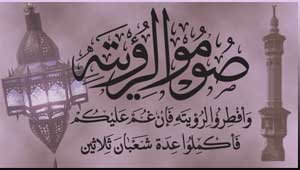 صُومُوا لِرُؤيَتِهِ
وَأفطِرُوا لِرُؤيَتِهِ فَإن غُمَّ عَلَيكُم
فَأكمِلُوا عِدَةَ شَعْبَانَ ثَلاثِين